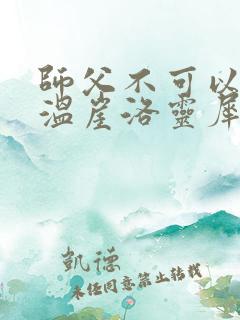 師父不可以
溫崖洛靈犀
凱德
未經同意禁止轉載